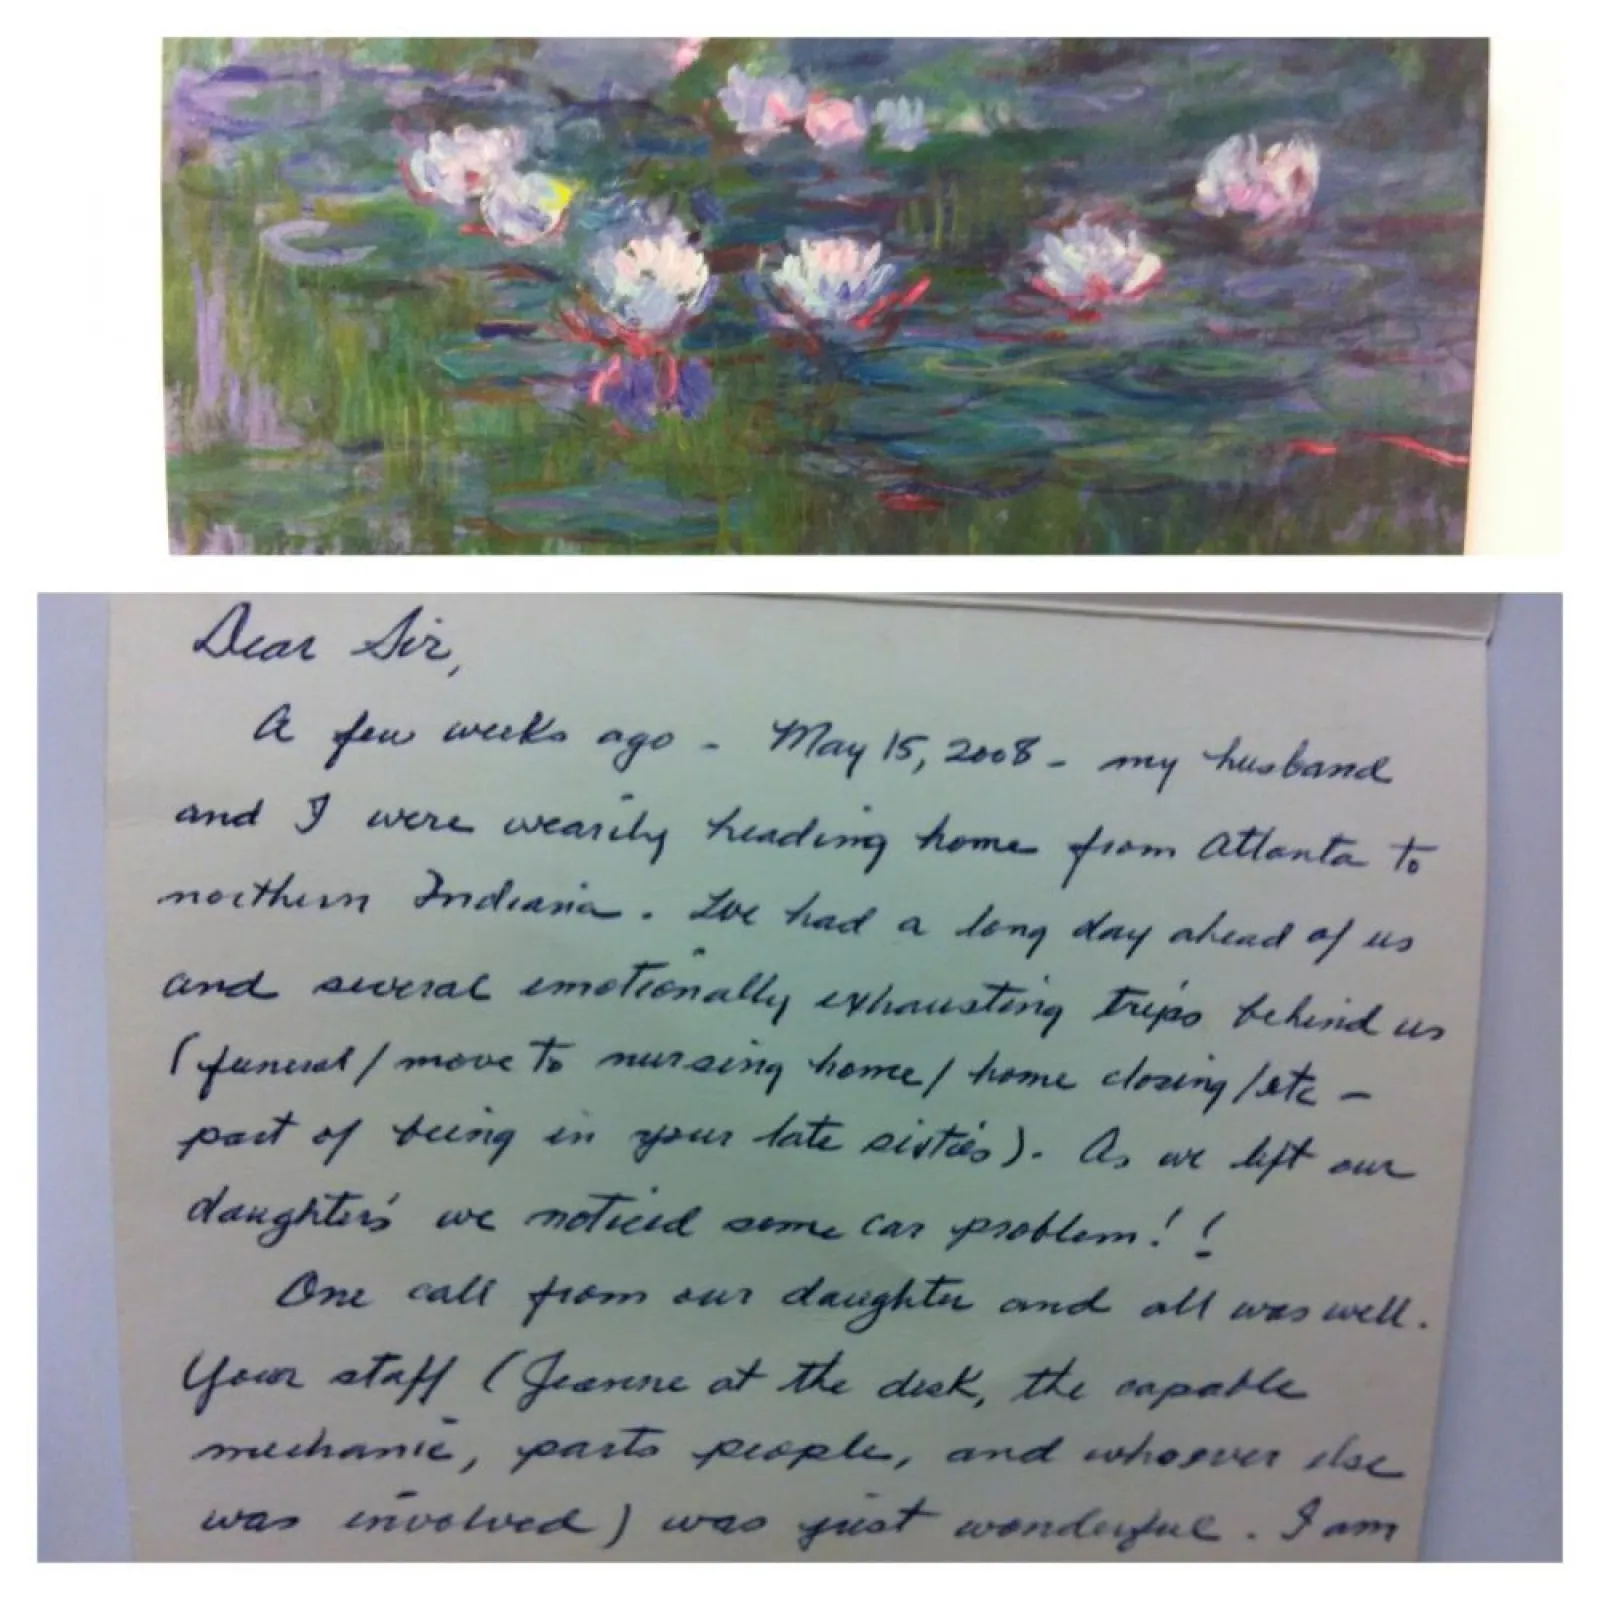 Dear Sir,
A few weeks ago - May 15, 2008 - my husband
and I were wearily heading home from Atlanta to
northern Indiana. We had a long day ahead of us
and several emotionally exhausting trips behind us
(funeral / move to nursing home / home closing / etc -
part of being in your late sixties). As we left our
daughter's we noticed some car problem!!
One call from our daughter and all was well.
Your staff (Jeanne at the desk, the capable
mechanic, parts people, and whoever else
was involved) was just wonderful. I am